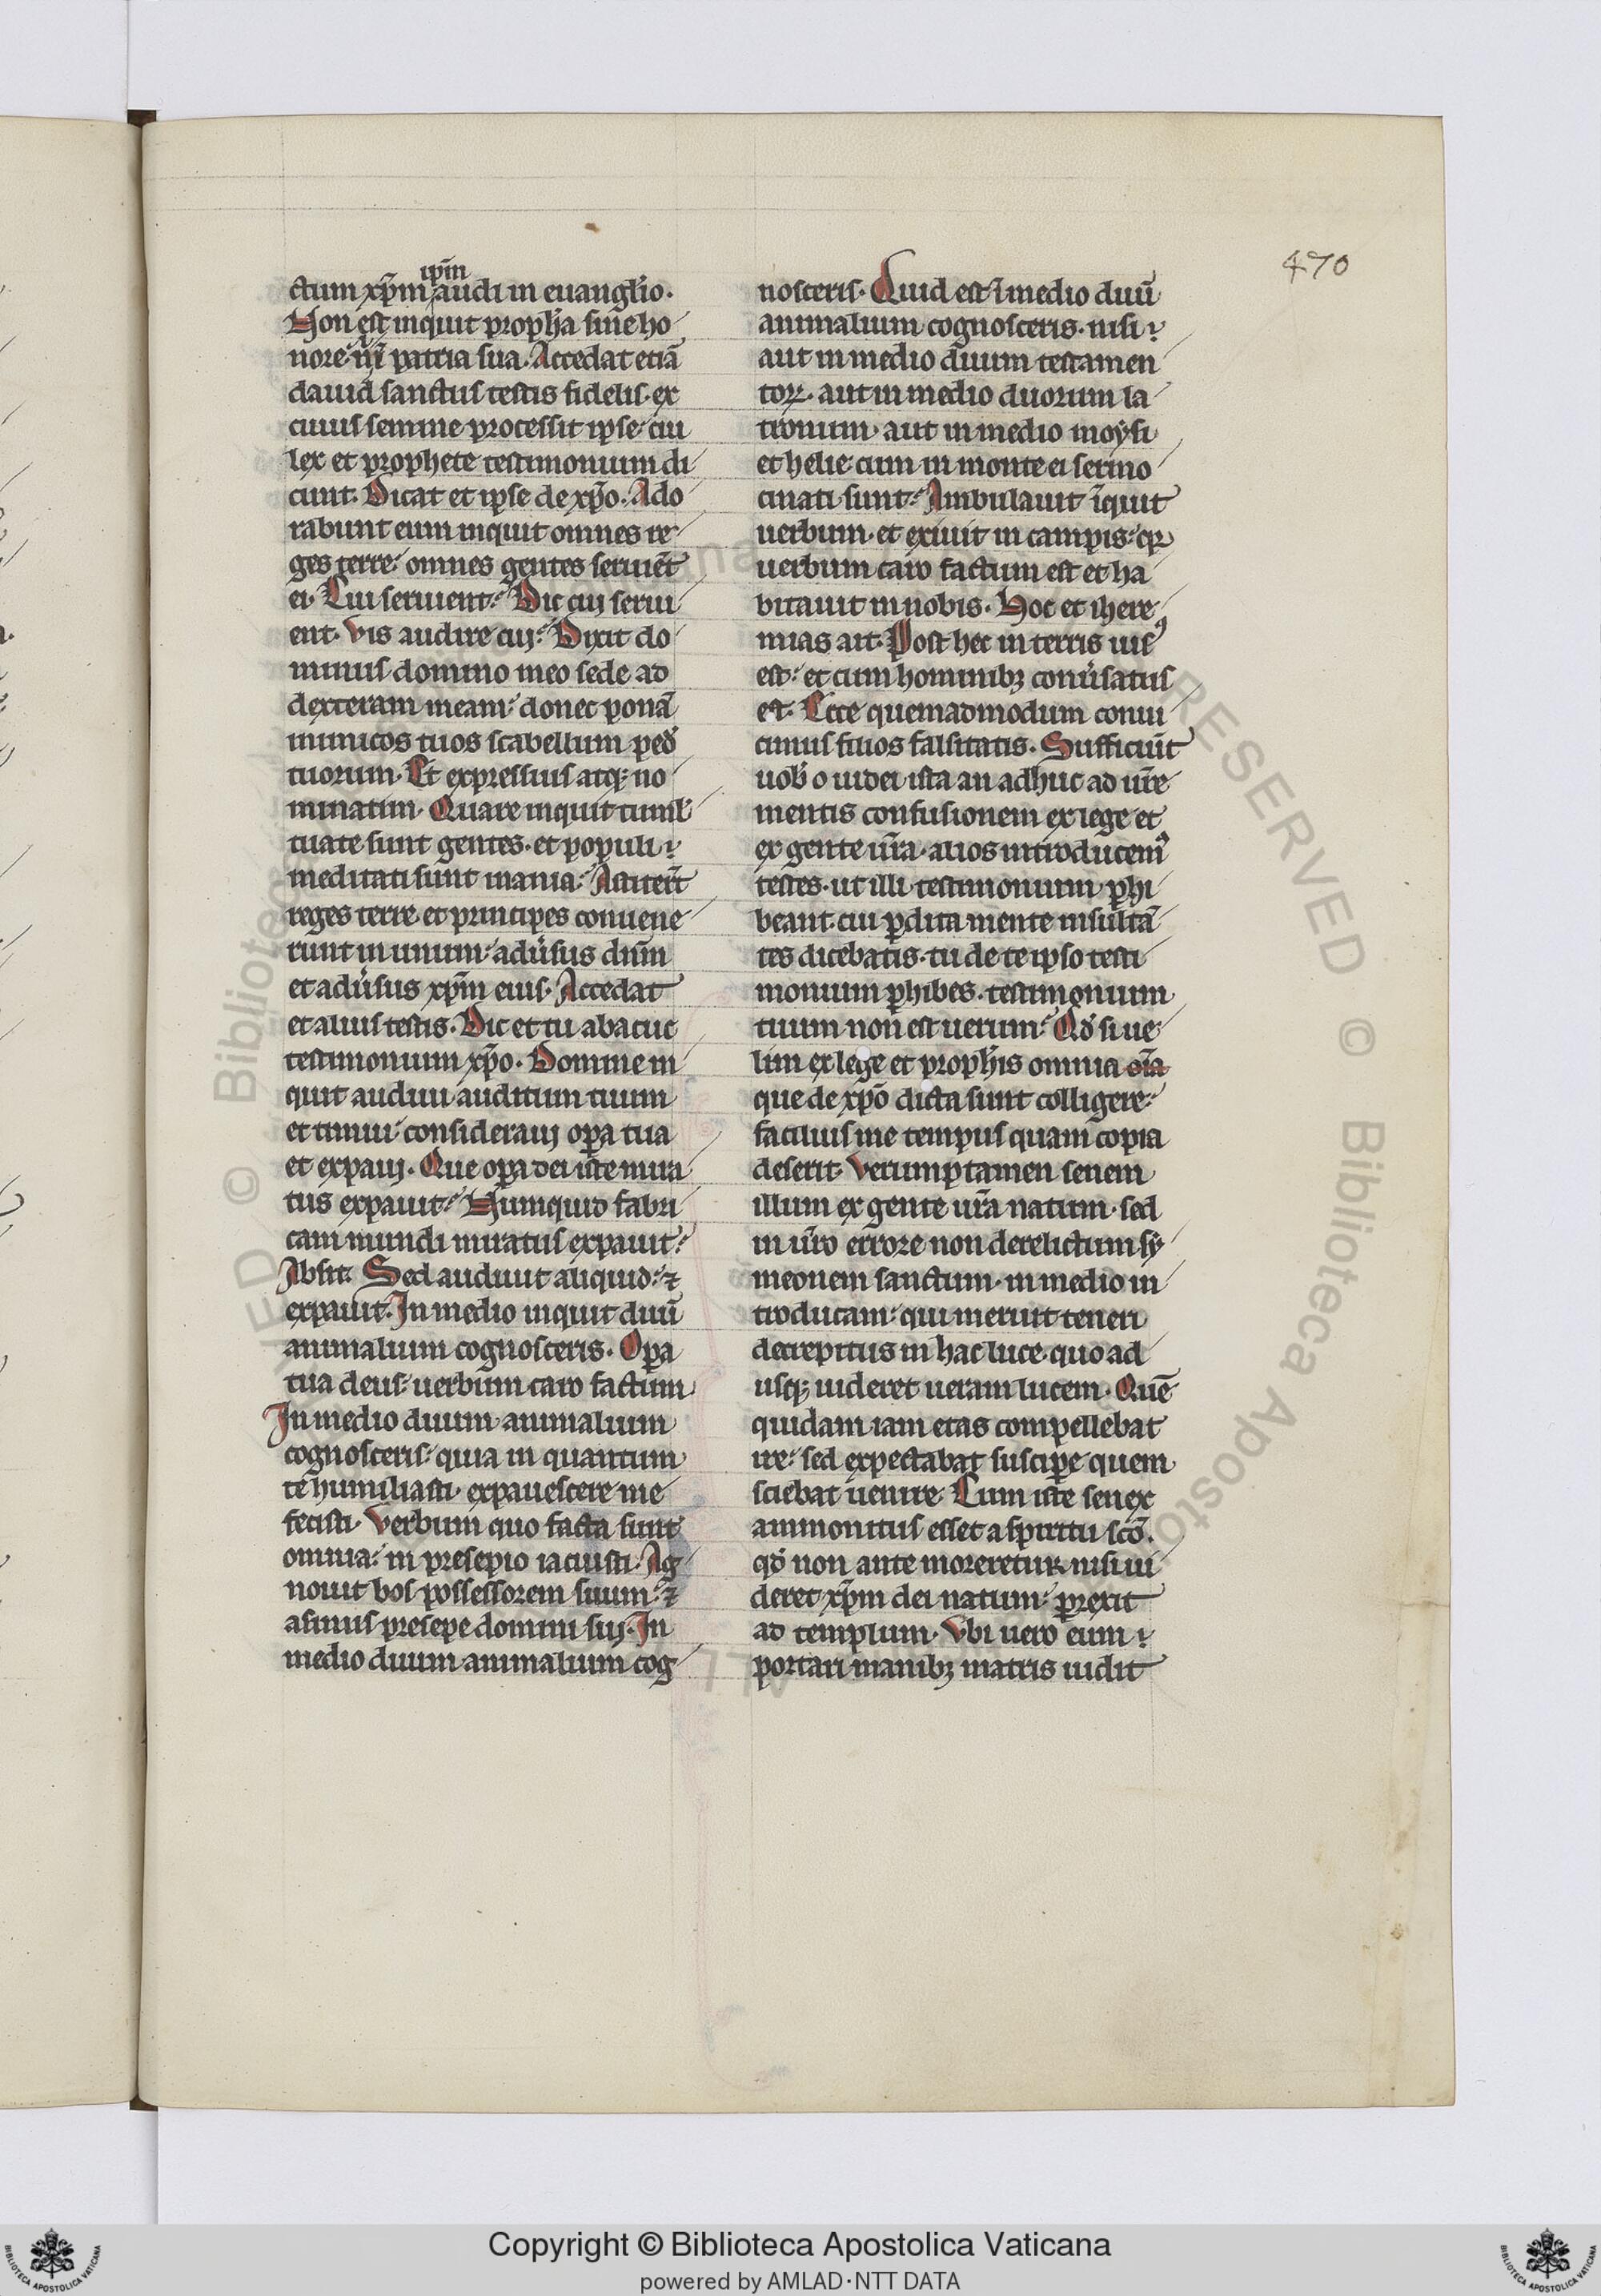 470
ip̄m
ctum xp̄m audi in euangl'io.
Non est inquit proph'a sine ho
nore nisi ī patria sua. Accedat etiā
dauid sanctus testis fidelis. ex
cuius semine processit ipse cui
lex et prophete testimonium di
cunt. Dicat et ipse de xp̄o. Ado
rabunt eum inquit omnes re
ges terre omnes gentes seruiēt
ei. Cui seruient. Dic cui serui
ent. Vis audire cui. Dixit do
minus domino meo sede ad
dexteram meam donec ponā
inimicos tuos scabellum ped
tuorum. Et expressius atq; no
minatim. Quare inquit tumul
tuate sunt gentes. et populi
meditati sunt inania. Astiter̄t
reges terre et principes conuene
runt in unum adu'sus dn̄m
et adu'sus xp̄m eius. Accedat
et alius testis. Dic et tu abacuc
testimonium xp̄o. Domine in
quit audiui auditum tuum
et timui consideraui opa tua
et expaui. Que opa dei iste mira
tus expauit. Numquid fabri
cam mundi miratus expauit.
Absit. Sed audiuit aliquid ⁊
expauit. In medio inquit duū
animalium cognosceris. Opa
tua deus uerbum caro factum
In medio duum animalium
cognosceris quia in quantum
te humiliasti. expauescere me
fecisti. Verbum quo facta sunt
omnia in presepio iacuisti. Ag
nouit bos possessorem suum ⁊
asinus presepe domini sui. In
medio duum animalium cog
nosceris. Quid est ī medio duū
animalium cognosceris. nisi
aut in medio duum testamen
toꝝ. aut in medio duorum la
tronum. aut in medio moysi
et helie cum in monte ei sermo
cinati sunt. Ambulauit īquit
uerbum. et exiuit in campis. qꝛ
uerbum caro factum est et ha
bitauit in nobis. Hoc et ihere
mias ait. Post hec in terris uisꝰ
est. et cum hominibꝫ conu'satus
est. Ecce quemadmodum conui
cimus fiuos falsitatis. Sufficiūt
uob' o iudei ista an adhuc ad ur̄e
mentis confusionem ex lege et
ex gente ur̄a. alios introducemꝰ
testes. ut illi testimonium phi
beant. cui pdita mente insultā
tes dicebatis. tu de te ipso testi
monium phibes. testimonium
tuum non est uerum. Qd' si ue
lim ex lege et proph'is omnia oīa
que de xp̄o dicta sunt colligere.
facilius me tempus quam copia
deserit. Verumptamen senem
illum ex gente ur̄a natum. sed
in ur̄o errore non derelictum sy
meonem sanctum. in medio in
troducam. qui meruit teneri
decrepitus in hac luce. quo ad
usq; uideret ueram lucem. Quē
quidam iam etas compellebat
ire. sed expectabat suscipe quem
sciebat uenire. Cum iste senex
ammonitus esset a spiritu scō.
qd' non ante moreretur. nisi ui
deret xp̄m dei natum. prexit
ad templum. Vbi uero eum
portari manibꝫ matris uidit
Copyright © Biblioteca Apostolica Vaticana
powered by AMLAD·NTT DATA